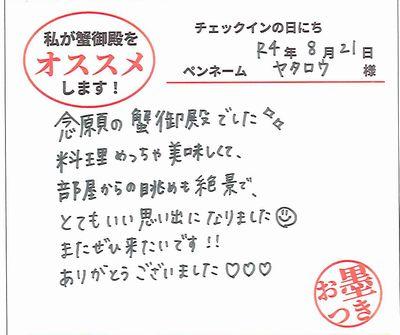 私が蟹御殿を
オススメ
します！
チェックインの日にち
R4年 8月 21日
ペンネーム ヤタロウ 様
念願の蟹御殿でした✨
料理めっちゃ美味しくて、
部屋からの眺めも絶景で、
とてもいい思い出になりました☺
またぜひ来たいです!!
ありがとうございました♡♡♡
お墨つき